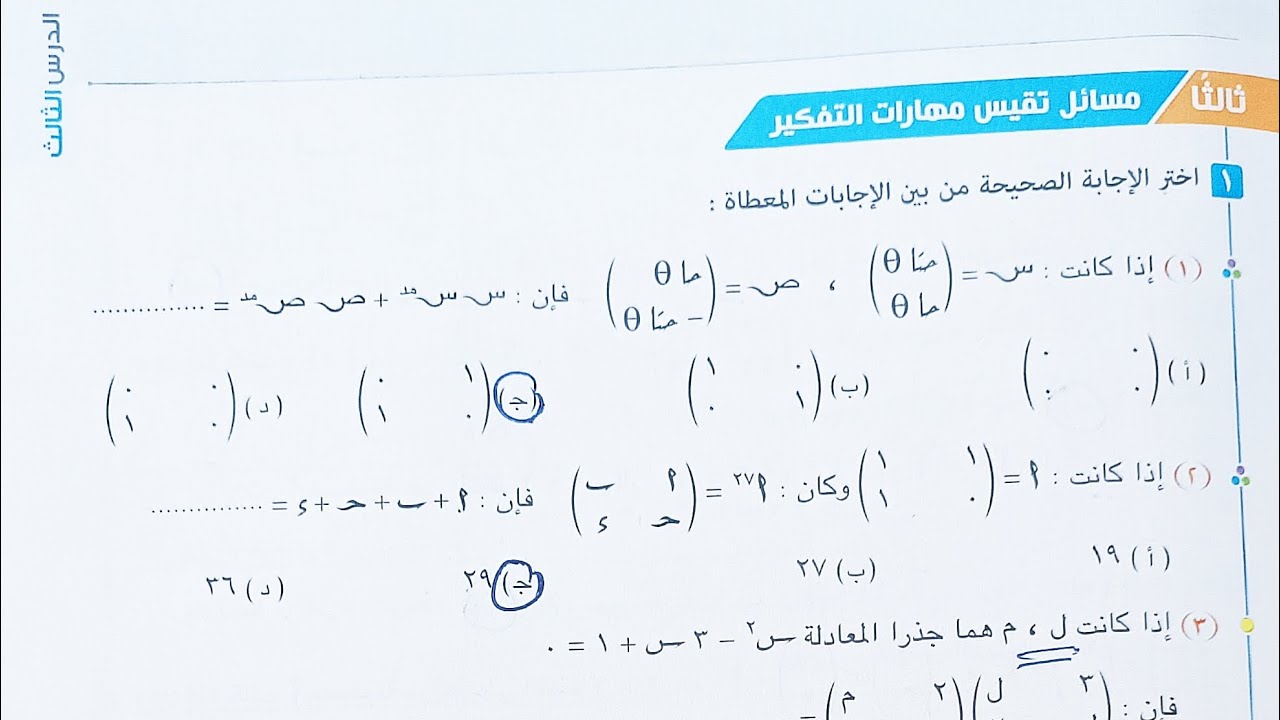 الدرس الثالث
ثالثًا مسائل تقيس مهارات التفكير
١ اختر الإجابة الصحيحة من بين الإجابات المعطاة :
(١) إذا كانت : س = (حتا θ
حا θ) ، ص = (حا θ
− حتا θ) فإن : س سمد + ص صمد = ...............
(أ) (٠ ٠
٠ ٠) (ب) (٠ ١
١ ٠) (جـ) (١ ٠
٠ ١) (د) (٠ ٠
٠ ١)
(٢) إذا كانت : ٢ = (١ ١
٠ ١) وكان : ٢٢٧ = (٢ ب
حـ ء) فإن : ٢ + ب + حـ + ء = ...............
(أ) ١٩ (ب) ٢٧ (جـ) ٢٩ (د) ٣٦
(٣) إذا كانت ل ، م هما جذرا المعادلة س٢ − ٣ س + ١ = ٠
فإن : (٣ ل) (٢ م) =